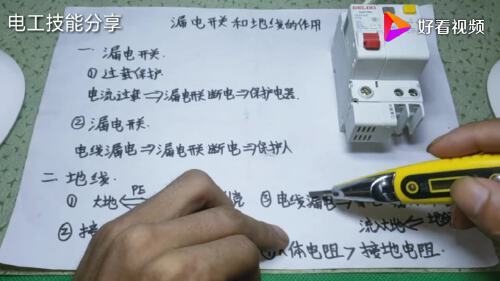 电工技能分享
好看视频
漏电开关和地线的作用
一 漏电开关.
① 过载保护
电流过载⇒漏电开关断电⇒保护电器.
② 漏电开关.
电线漏电⇒漏电开关断电⇒保护人
二 地线.
① 大地 PE
③ 电线漏电⇒
② 接
流大地⇐地
体电阻>接地电阻.
DELIXI